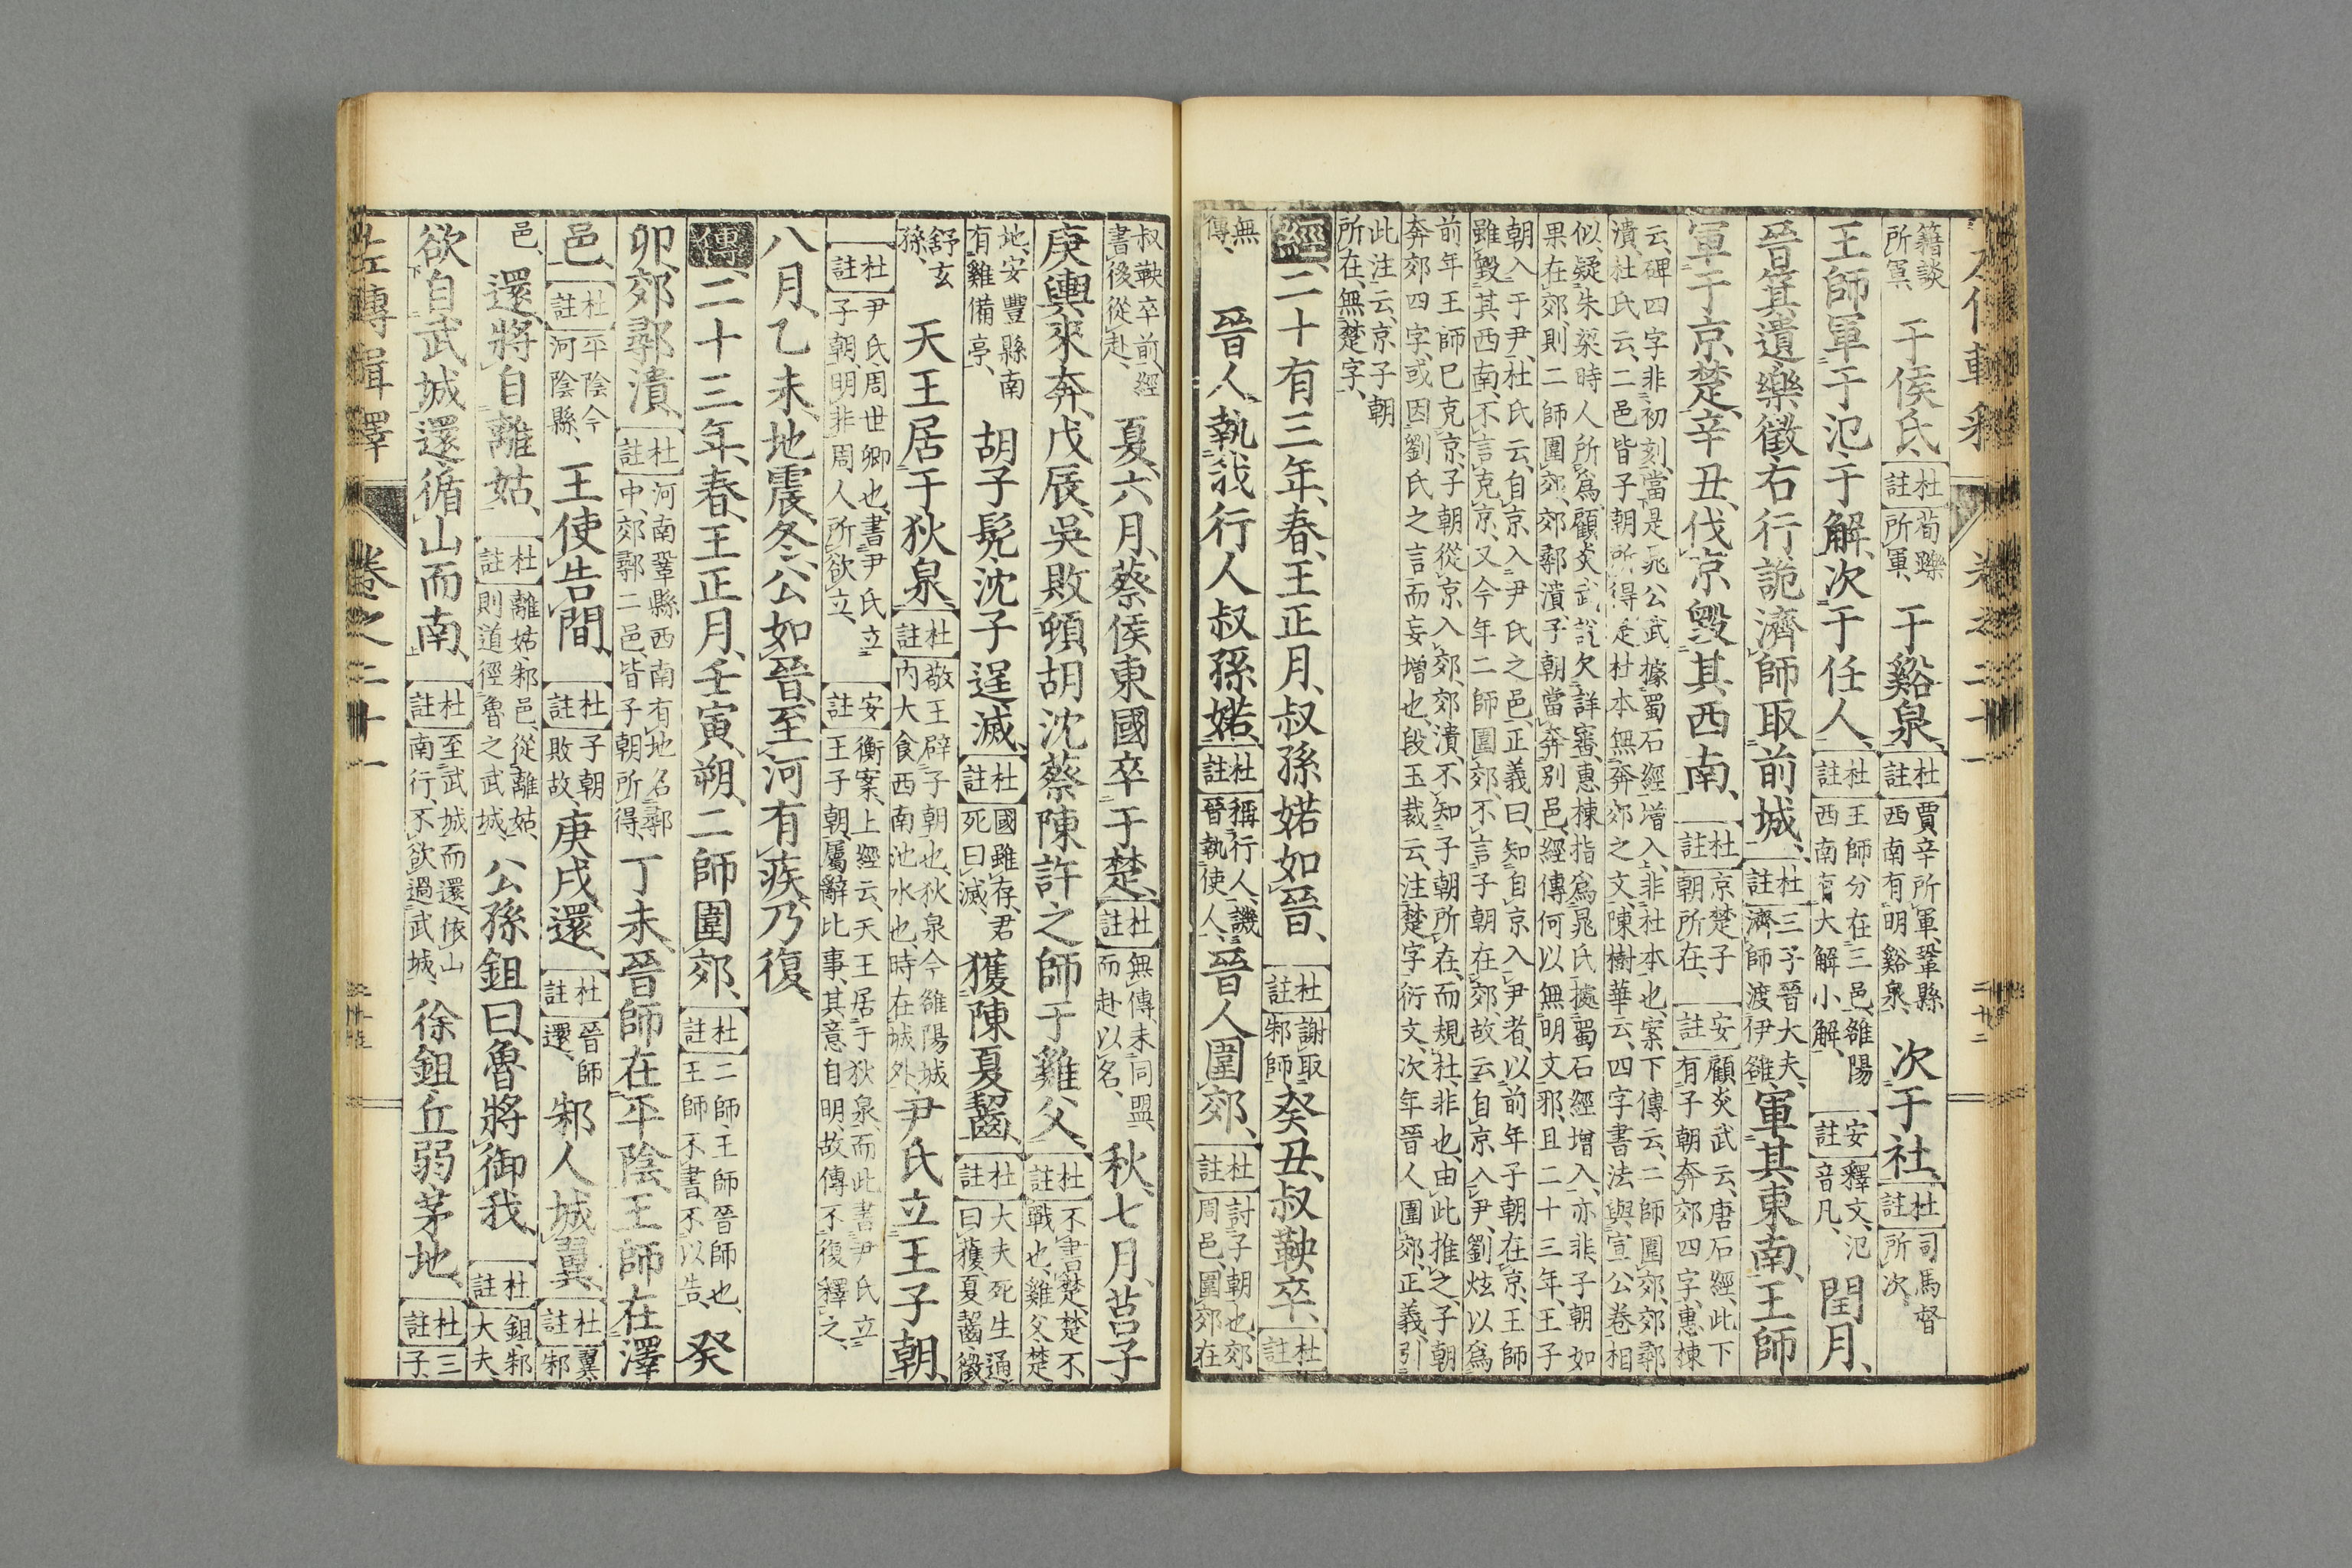 籍談所軍、于侯氏、杜註荀躒所軍、于谿泉、杜註賈辛所軍、鞏縣西南有明谿泉、次于社、杜註司馬督所次、
王師軍于氾、于解、次于任人、杜註王師分在三邑、雒陽西南有大解小解、安註釋文、氾音凡、閏月、
晉箕遺樂徵右行詭濟師取前城、杜註三子晉大夫、濟師渡伊雒、軍其東南、王師
軍于京楚、辛丑、伐京、毀其西南、杜註京楚子朝所在、安註顧炎武云、唐石經、此下有子朝奔郊四字、惠棟
云、碑四字非初刻、當是晁公武據蜀石經增入、非杜本也、案下傳云、二師圍郊、郊鄩
潰、杜氏云、二邑皆子朝所得、是杜本無奔郊之文、陳樹華云、四字書法與宣公卷相
似、疑朱梁時人所爲、顧炎武說欠詳審、惠棟指爲晁氏據蜀石經增入、亦非、子朝如
果在郊、則二師圍郊、郊鄩潰、子朝當奔別邑、經傳何以無明文邪、且二十三年、王子
朝入于尹、杜氏云、自京入尹氏之邑、正義曰、知自京入尹者、以前年子朝在京、王師
雖毀其西南、不言克京、又今年二師圍郊、不言子朝在郊、故云自京入尹、劉炫以爲
前年王師已克京、子朝從京入郊、郊潰、不知子朝所在、而規杜、非也、由此推之、子朝
奔郊四字、或因劉氏之言而妄增也、段玉裁云、注楚字衍文、次年晉人圍郊、正義引
此注云、京子朝
所在、無楚字、
經、二十有三年、春、王正月、叔孫婼如晉、杜註謝取邾師癸丑、叔鞅卒、杜註
無傳、晉人執我行人叔孫婼、杜註稱行人、譏晉執使人、晉人圍郊、杜註討子朝也、郊周邑、圍郊在
叔鞅卒前、經書後從赴、夏、六月、蔡侯東國卒于楚、杜註無傳、未同盟而赴以名、秋、七月、莒子
庚輿來奔、戊辰、吳敗頓胡沈蔡陳許之師于雞父、杜註不書楚、楚不戰也、雞父、楚
地、安豐縣南有雞備亭、胡子髡、沈子逞滅、杜註國雖存、君死曰滅、獲陳夏齧、杜註大夫死生通曰獲、夏齧、徵
舒玄孫、天王居于狄泉、杜註敬王辟子朝也、狄泉今雒陽城內大倉西南池水也、時在城外、尹氏立王子朝、
杜註尹氏、周世卿也、書尹氏立子朝、明非周人所欲立、安註衡案、上經云、天王居于狄泉、而此書尹氏立王子朝、屬辭比事、其意自明、故傳不復釋之、
八月、乙未、地震、冬、公如晉、至河、有疾、乃復、
傳、二十三年、春、王正月、壬寅、朔、二師圍郊、杜註二師、王師晉師也、王師不書、不以告、癸
卯、郊鄩潰、杜註河南鞏縣西南有地名鄩中、郊鄩二邑、皆子朝所得、丁未、晉師在平陰、王師在澤
邑、杜註平陰今河陰縣、王使告間、杜註子朝敗故、庚戌、還、杜註晉師還、邾人城翼、杜註翼、邾
邑、還、將自離姑、杜註離姑、邾邑、從離姑、則道徑魯之武城、公孫鉏曰、魯將御我、杜註鉏、邾大夫、
欲自武城還、循山而南、杜註至武城而還、依山南行、不欲過武城、徐鉏、丘弱、茅地、杜註三子
左傳輯釋 卷之二十一